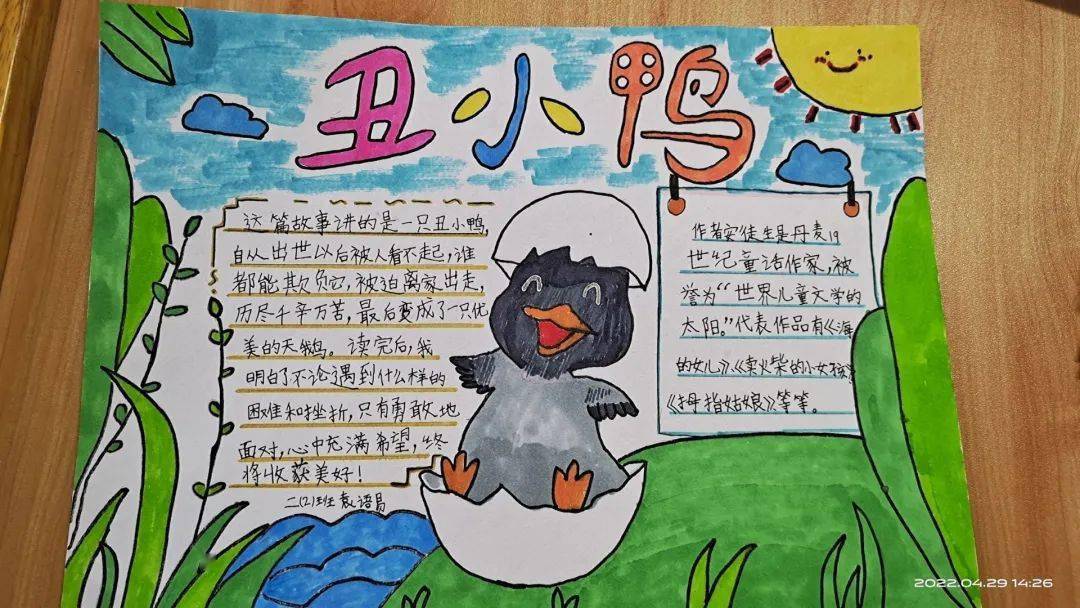 丑小鸭
这篇故事讲的是一只丑小鸭,
自从出世以后被人看不起,谁
都能欺负它,被迫离家出走,
历尽千辛万苦,最后变成了一只优
美的天鹅。读完后,我
明白了不论遇到什么样的
困难和挫折,只有勇敢地
面对,心中充满希望,终
将收获美好!
二(2)班 袁语易
作者安徒生是丹麦19
世纪童话作家,被
誉为“世界儿童文学的
太阳。”代表作品有《海
的女儿》《卖火柴的小女孩》
《拇指姑娘》等等。
2022.04.29 14:26